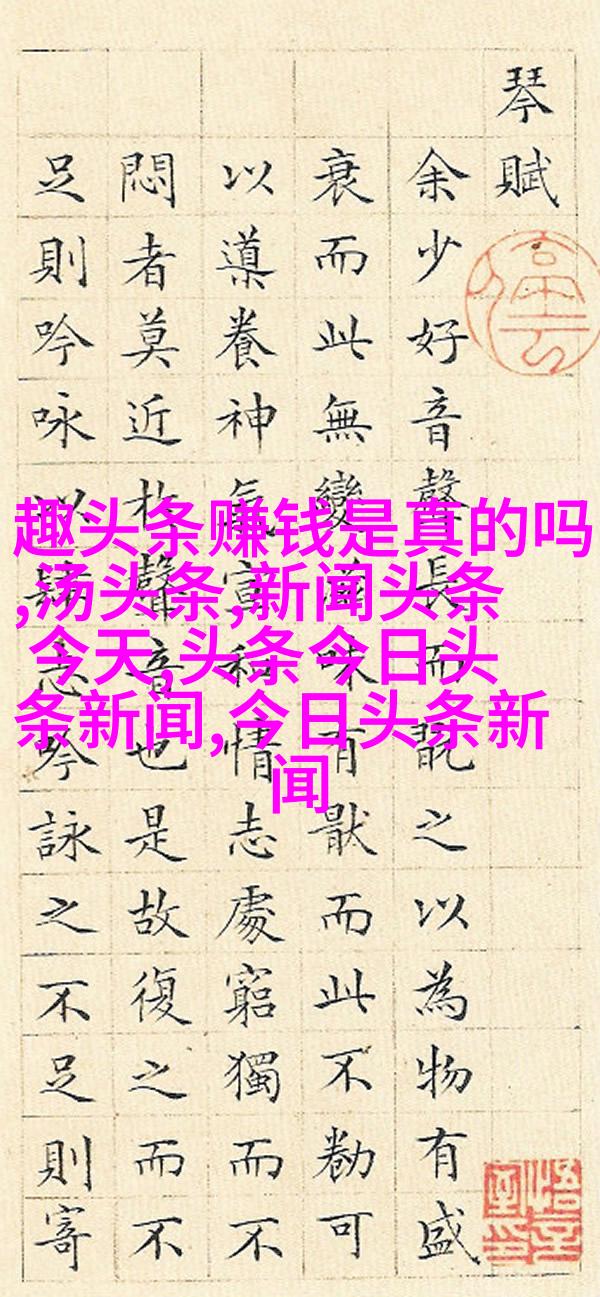 琴賦
余少好音聲長而翫之以為物有盛
衰而此無變滋味有猒而此不勌可
以導養神氣宣和情志處窮獨而不
悶者莫近於聲音也是故復之而不
足則吟咏以肆志吟詠之不足則寄
趣头条赚钱是真的吗
,汤头条,新闻头条
今天,头条今日头
条新闻,今日头条新
闻